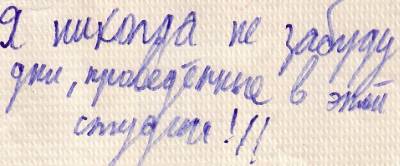 Я никогда не забуду
дни, проведённые в этой
студии!!!